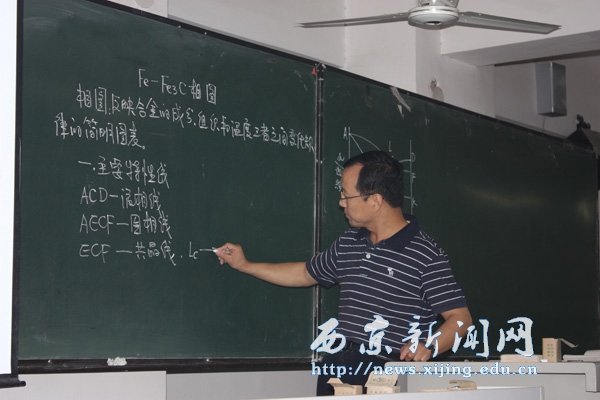 Fe-Fe₃C相图
相图:反映合金的成分、组织和温度三者之间变化规
律的简明图表。
一.主要特性线
ACD—液相线
AECF—固相线
ECF—共晶线. Lc—
A
D
西京新闻网
http://news.xijing.edu.cn